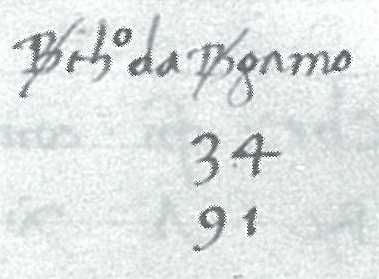 Brthº da Bgamo
34
91